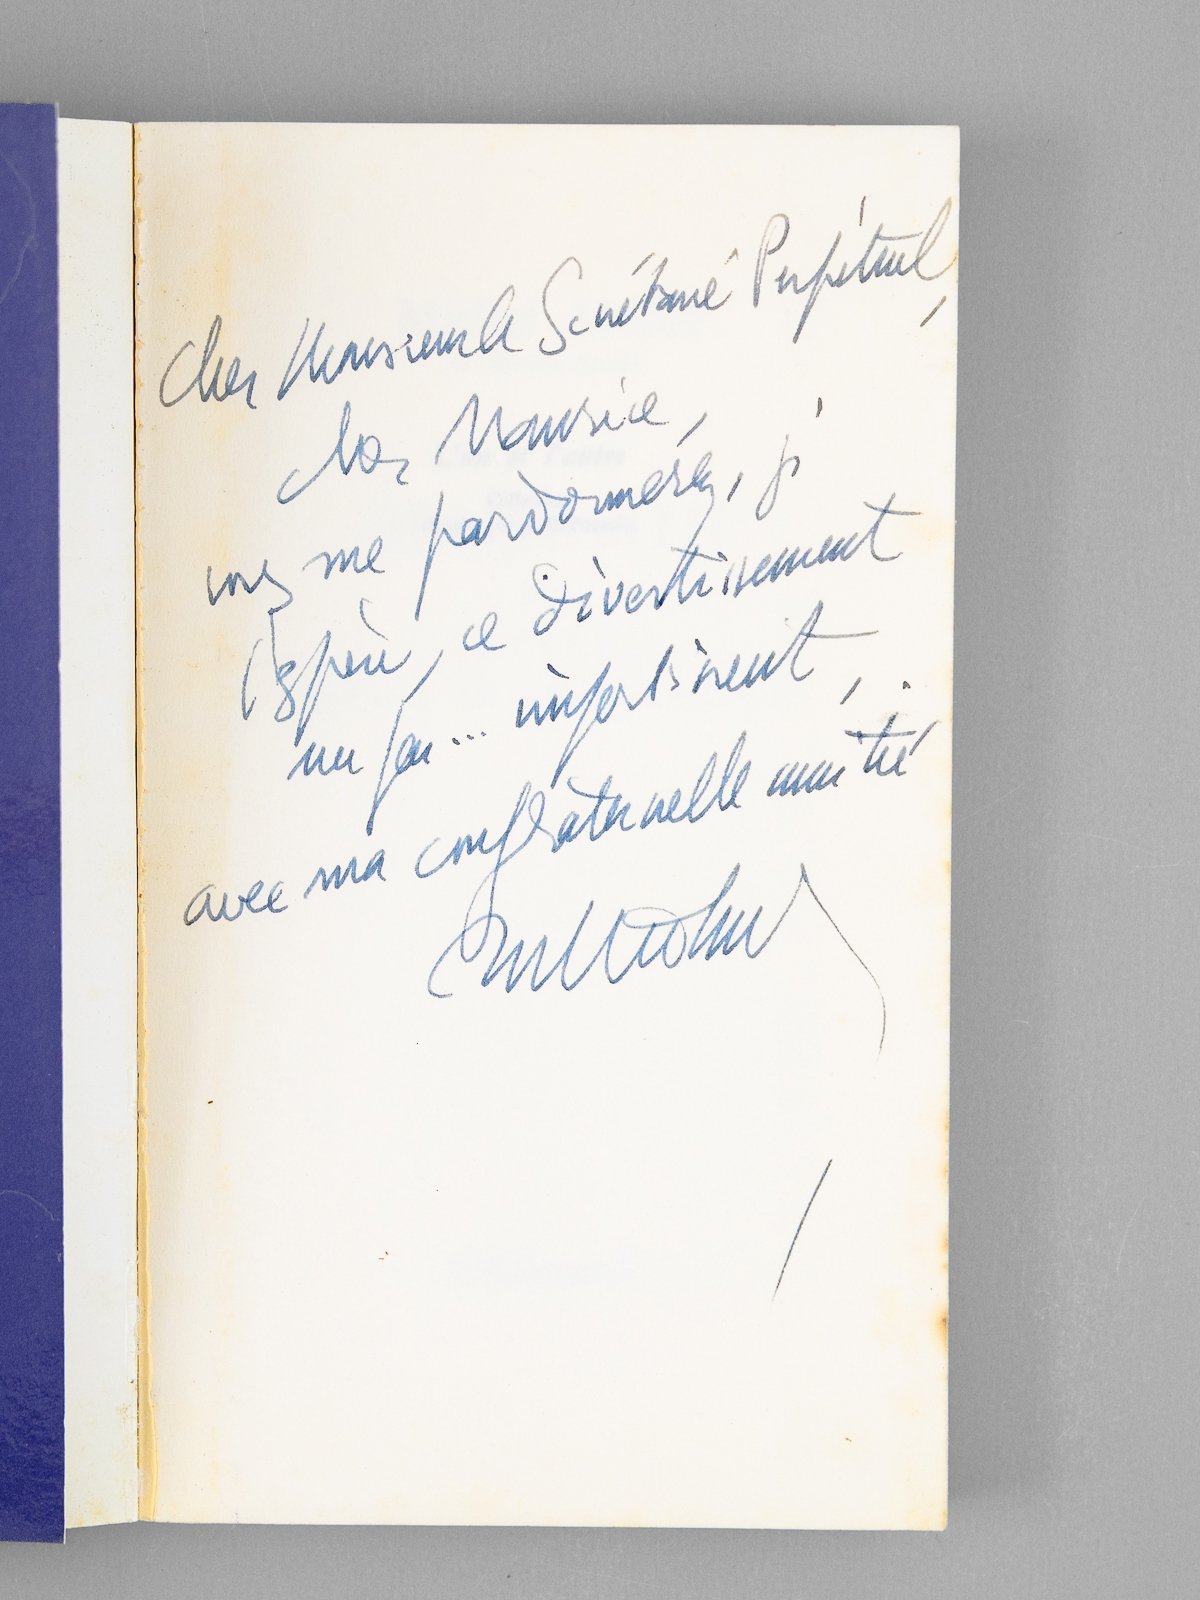 Cher Monsieur le Secrétaire Perpétuel,
cher Maurice,
vous me pardonnerez, j'
espère, ce divertissement
un peu... impertinent,
avec ma confraternelle amitié.